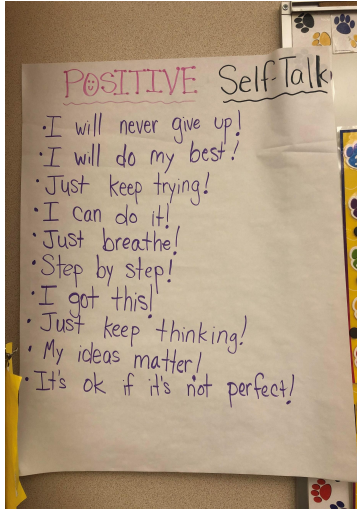 POSITIVE Self-Talk
• I will never give up!
• I will do my best!
• Just keep trying!
• I can do it!
• Just breathe!
• Step by step!
• I got this!
• Just keep thinking!
• My ideas matter!
• It's ok if it's not perfect!